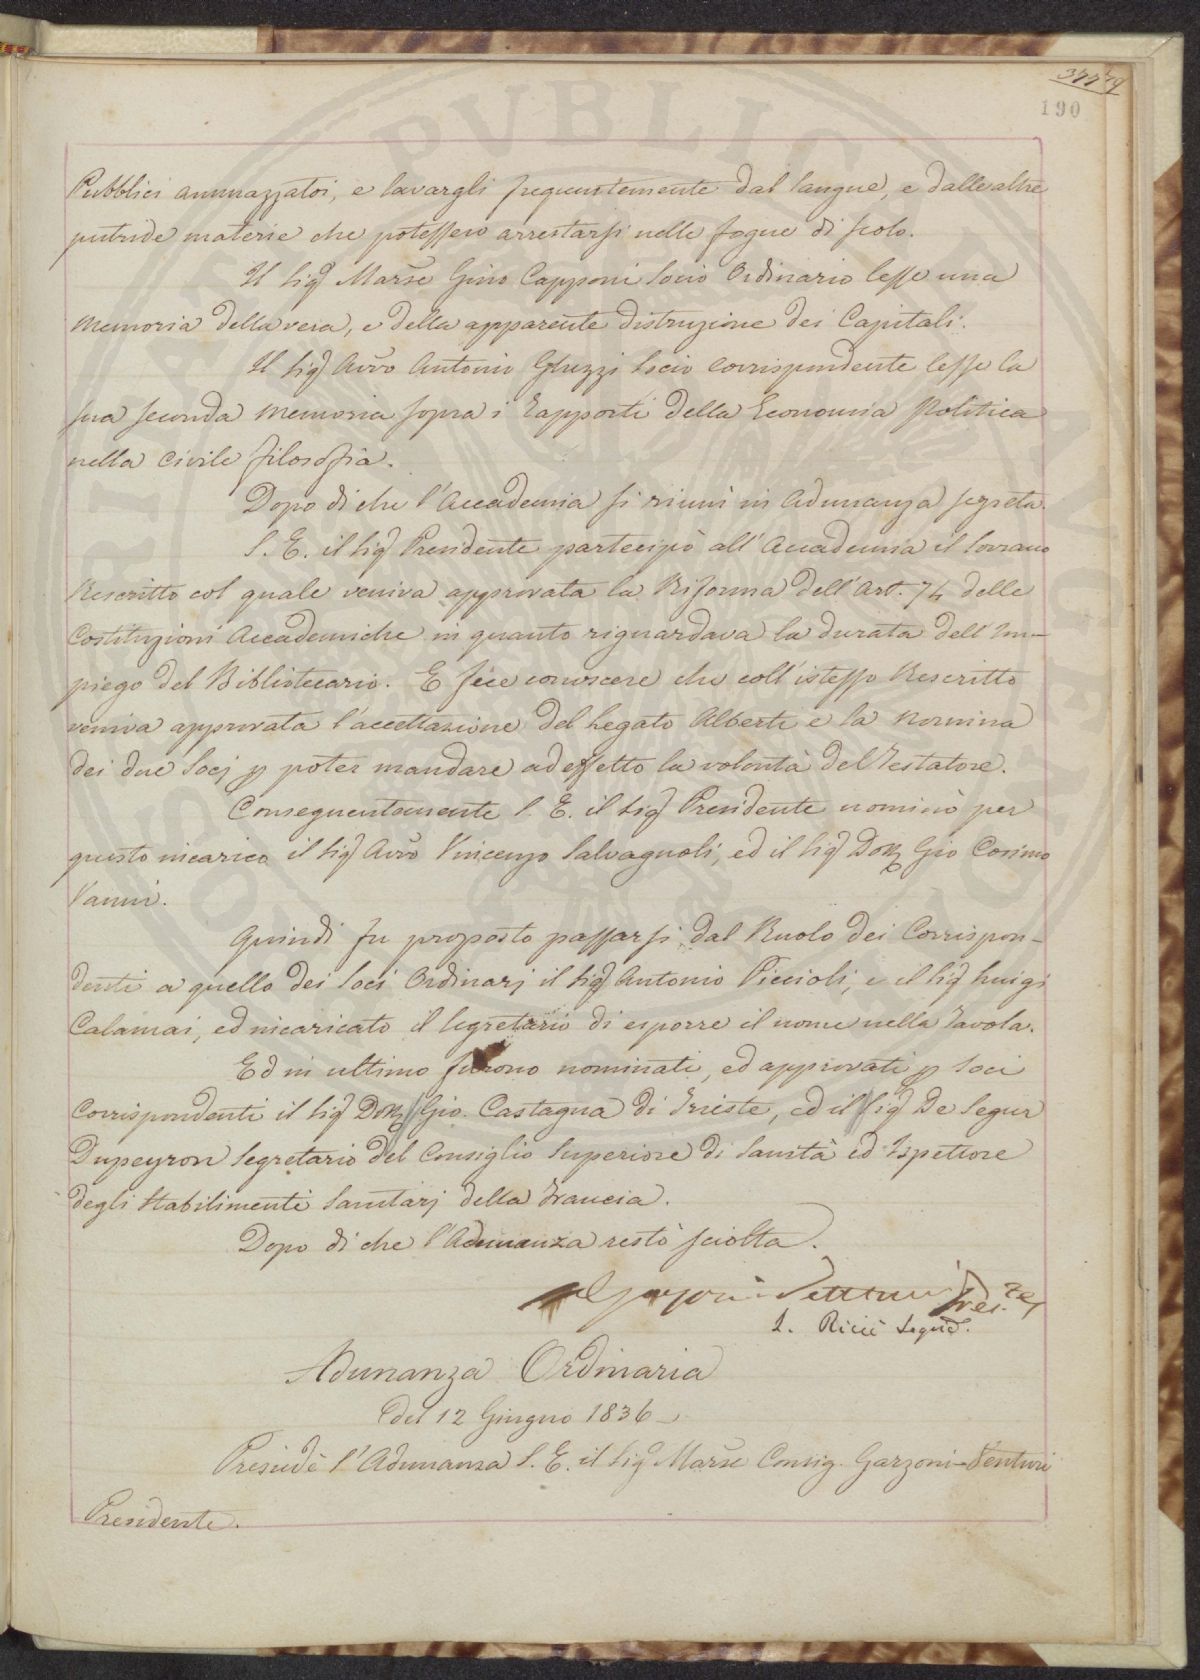 190
Pubblici ammazzatoi, e lavargli frequentemente dal sangue, e dalle altre
putride materie che potessero arrestarsi nelle fogne di scolo.
Il Sig. Marse Gino Capponi Socio Ordinario lesse una
Memoria della vera, e della apparente distruzione dei Capitali.
Il Sig. Avvo Antonio Ghezzi Socio Corrispondente lesse la
sua seconda memoria sopra i rapporti della Economia Politica
nella Civile filosofia.
Dopo di che l'Accademia si riunì in adunanza segreta.
S. E. il Sig. Presidente partecipò all'Accademia il Sovrano
Rescritto col quale veniva approvata la Riforma dell'Art. 74 delle
Costituzioni Accademiche in quanto riguardava la durata dell'Im-
piego del Bibliotecario. E fece conoscere che coll'istesso Rescritto
veniva approvata l'accettazione del Legato Alberti e la Nomina
dei due Socj p poter mandare ad effetto la volontà del Testatore.
Conseguentemente S. E. il Sig. Presidente nominò per
questo incarico il Sig. Avvo Vincenzo Salvagnoli, ed il Sig. Dott. Gio Cosimo
Vanni.
Quindi fu proposto passarsi dal Ruolo dei Corrispon-
denti a quello dei Soci Ordinarj il Sig. Antonio Piccioli, e il Sig. Luigi
Calamai, ed incaricato il Segretario di esporre il nome nella Tavola.
Ed in ultimo furono nominati, ed approvati p Soci
Corrispondenti il Sig. Dott. Gio. Castagna di Trieste, ed il Sig. De Segur
Dupeyron Segretario del Consiglio Superiore di Sanità ed Ispettore
degli Stabilimenti Sanitarj della Francia.
Dopo di che l'Adunanza restò sciolta.
Garzoni Venturi Pres.te
L. Ricci Segro.
Adunanza Ordinaria
del 12 Giugno 1836
Presiedè l'Adunanza S. E. il Sig. Marse Consig. Garzoni-Venturi
Presidente.